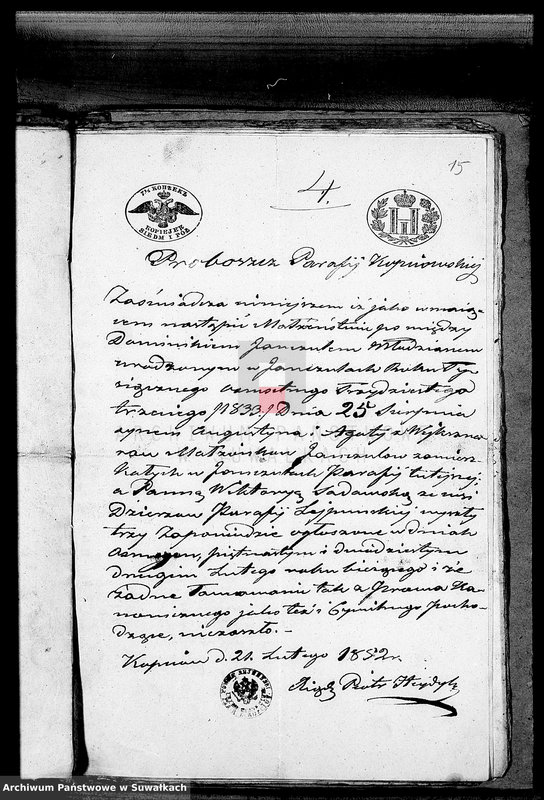 15
4.
7½ КОПѢЕКЪ
KOPIEJEK
SIEDM I PÓŁ
Proboszcz Parafij Kopciowskiej
Zaświadcza niniejszem iż jako w maią-
cem nastąpić Małżeństwie po między
Dominikiem Janczulem Młodzianem
urodzonym w Janczulach Roku Ty-
siącznego ośmsetnego Trzydziestego
trzeciego /1833/ Dnia 25 Sierpnia
synem Augustyna i Agaty z
Małżonków Janczulów zamiesz-
kałych w Janczulach Parafij tutejszej
a Panną Wiktoryą Sadowską ze wsi
Parafij Lejpuńskiej wyszły
trzy Zapowiedzie ogłoszone w dniach
ósmym, piętnastym i dwudziestym
drugim Lutego roku bieżącego i że
żadne Tamowanie tak z Prawa Ka-
nonicznego jako też i Cywilnego pocho-
dzące, niezaszło. -
Kopciów d. 21. Lutego 1852 r.
Xiądz Piotr
Archiwum Państwowe w Suwałkach